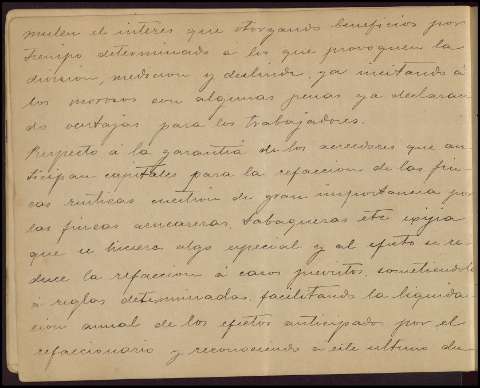 mulen el interes que otorgando beneficios por
tiempo determinado a los que provoquen la
division, medicion y deslinde, ya incitando á
los morosos con algunas penas ya declaran
do ventajas para los trabajadores.
Respecto á la garantiá de los acreedores que an
ticipan capitales para la refaccion de las fin
cas rusticas cuestion de gran importancia por
las fincas azucareras, tabaqueras etc exijia
que se hiciera algo especial y al efecto se re
duce la refaccion á casos previstos, sometiendola
á reglas determinadas, facilitando la liquida
cion anual de los efectos anticipados por el
refaccionario y reconociendo a este ultimo du